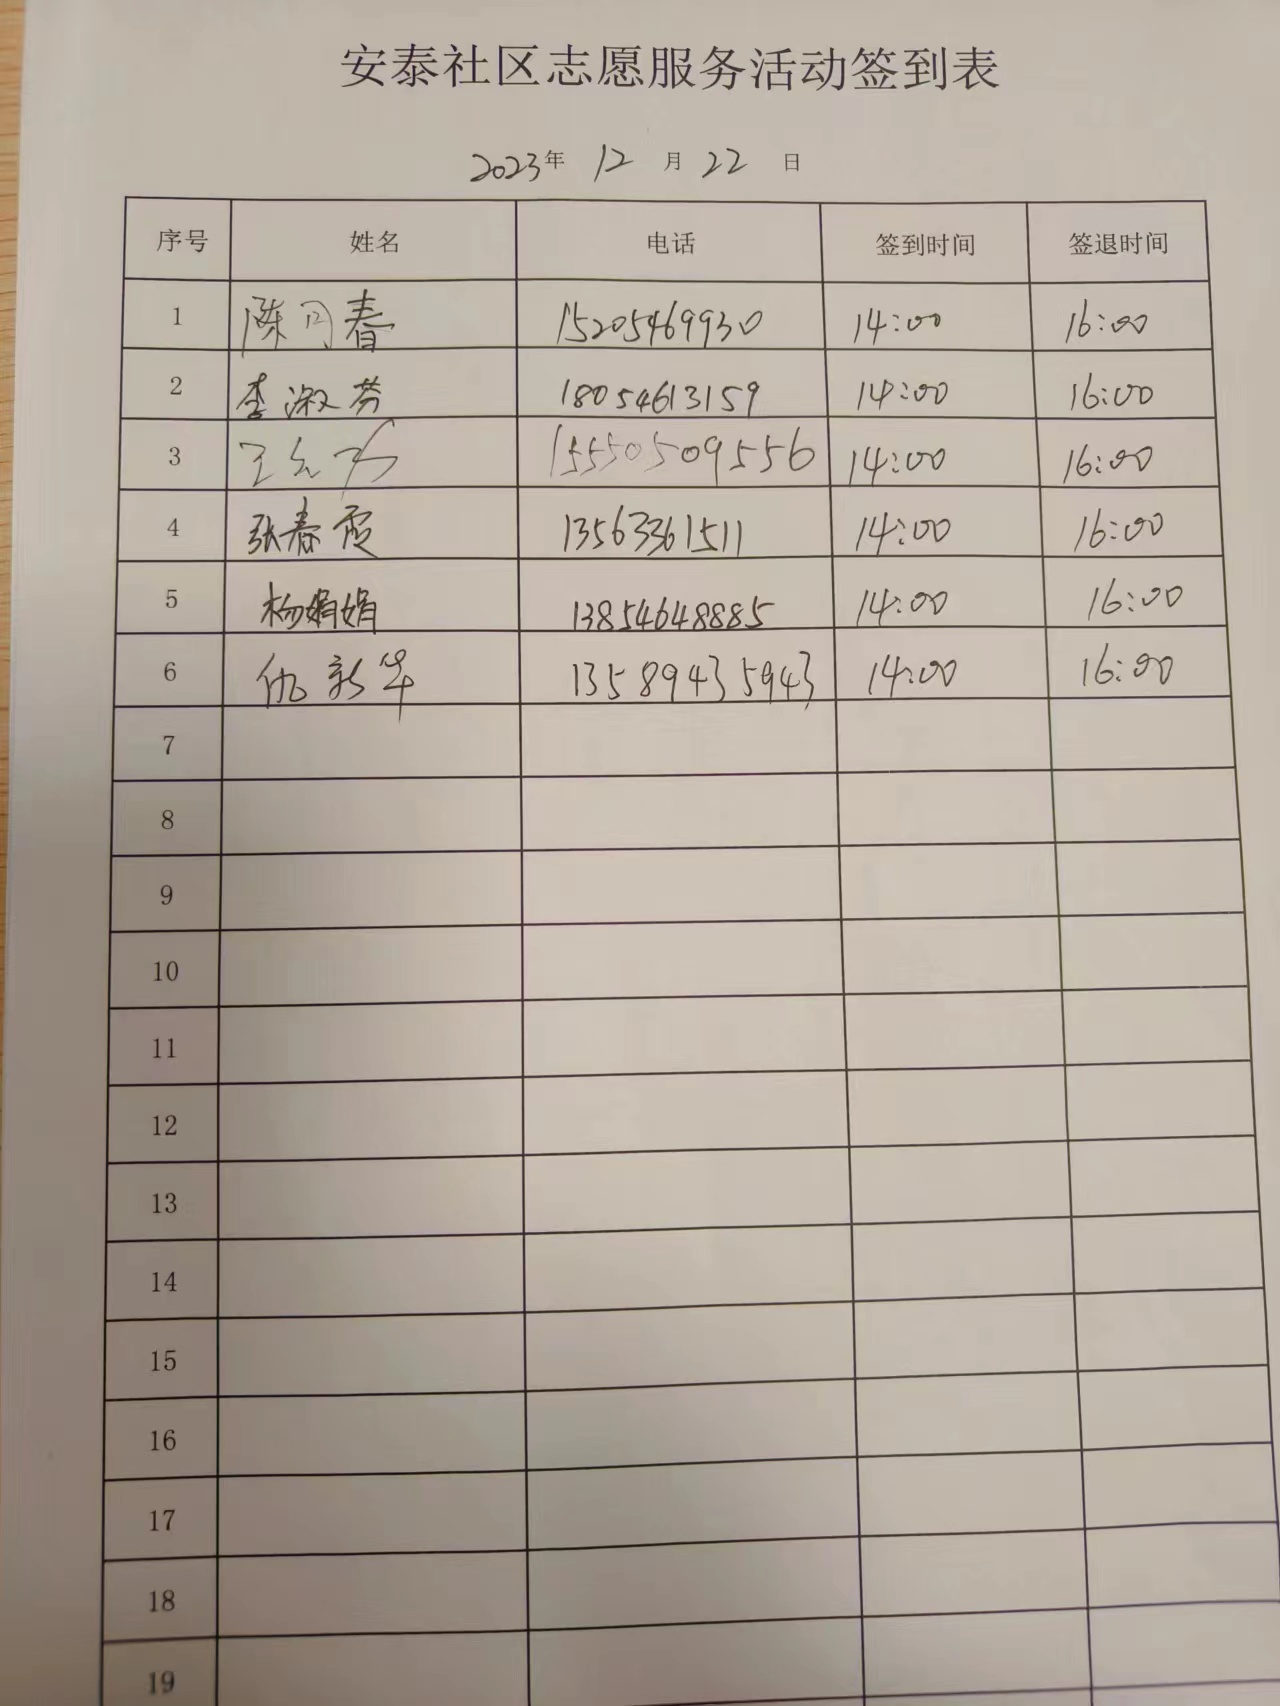 安泰社区志愿服务活动签到表
2023年 12 月 22 日
序号 姓名 电话 签到时间 签退时间
1 陈月春 15205469930 14:00 16:00
2 李淑芬 18054613159 14:00 16:00
3 王 15550509556 14:00 16:00
4 张春霞 13563361511 14:00 16:00
5 杨娟娟 13854648885 14:00 16:00
6 仇新华 13589435943 14:00 16:00
7
8
9
10
11
12
13
14
15
16
17
18
19